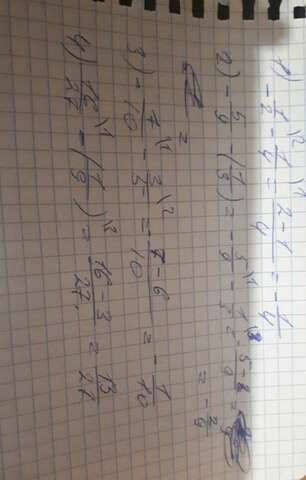 1) - 1/2 \2 - 1/4 \1 = 2-1/4 = - 1/4
2) - 5/9 - (1/3) = - 5/9 \1 - 1/3 \3 = 5-3/9 =
= - 2/9
3) - 7/10 \1 - 3/5 \2 = 7-6/10 = - 1/10
4) 16/27 \1 - (1/9) \3 = 16-3/27 = 13/27